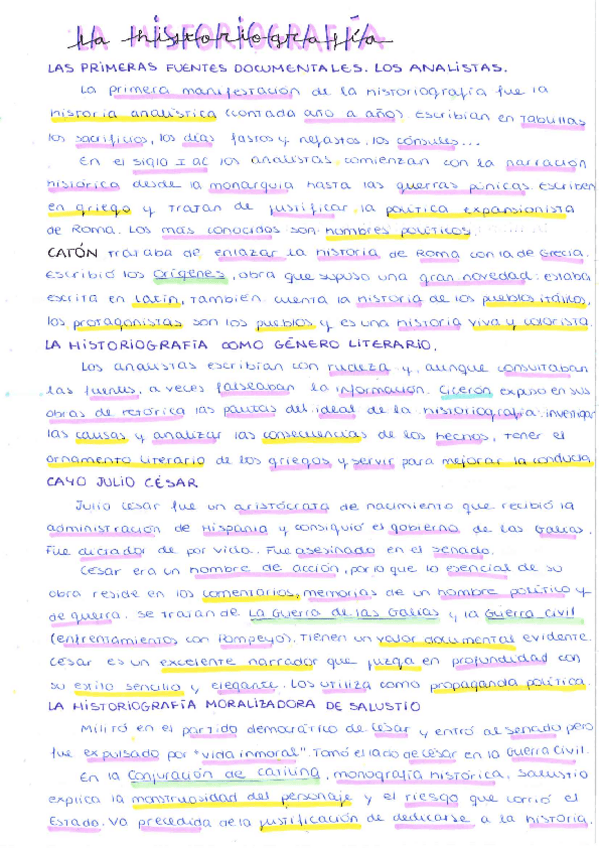 LA HISTORIOGRAFÍA
LAS PRIMERAS FUENTES DOCUMENTALES. LOS ANALISTAS.
La primera manifestación de la historiografía fue la
historia analística (contada año a año). Escribían en tablillas
los sacrificios, los días fastos y nefastos, los cónsules...
En el siglo I aC los analistas comienzan con la narración
histórica desde la monarquía hasta las guerras púnicas. Escriben
en griego y tratan de justificar la política expansionista
de Roma. Los más conocidos son hombres políticos.
CATÓN trataba de enlazar la historia de Roma con la de Grecia.
Escribió los Orígenes, obra que supuso una gran novedad: estaba
escrita en latín, también cuenta la historia de los pueblos itálicos,
los protagonistas son los pueblos y es una historia viva y colorista.
LA HISTORIOGRAFÍA COMO GÉNERO LITERARIO.
Los analistas escribían con rudeza y, aunque consultaban
las fuentes, a veces falseaban la información. Cicerón expuso en sus
obras de retórica las pautas del ideal de la historiografía: investigar
las causas y analizar las consecuencias de los hechos, tener el
ornamento literario de los griegos y servir para mejorar la conducta.
CAYO JULIO CÉSAR
Julio César fue un aristócrata de nacimiento que recibió la
administración de Hispania y consiguió el gobierno de las Galias.
Fue dictador de por vida. Fue asesinado en el senado.
César era un hombre de acción, por lo que lo esencial de su
obra reside en los comentarios, memorias de un hombre político y
de guerra. Se tratan de La Guerra de las Galias y la Guerra Civil
(enfrentamientos con Pompeyo). Tienen un valor documental evidente.
César es un excelente narrador que juega en profundidad con
su estilo sencillo y elegante. Los utiliza como propaganda política.
LA HISTORIOGRAFÍA MORALIZADORA DE SALUSTIO
Militó en el partido democrático de César y entró al senado pero
fue expulsado por "vida inmoral". Tomó el lado de César en la Guerra Civil.
En la Conjuración de Catilina, monografía histórica, Salustio
explica la monstruosidad del personaje y el riesgo que corrió el
Estado. Va precedida de la justificación de dedicarse a la historia.